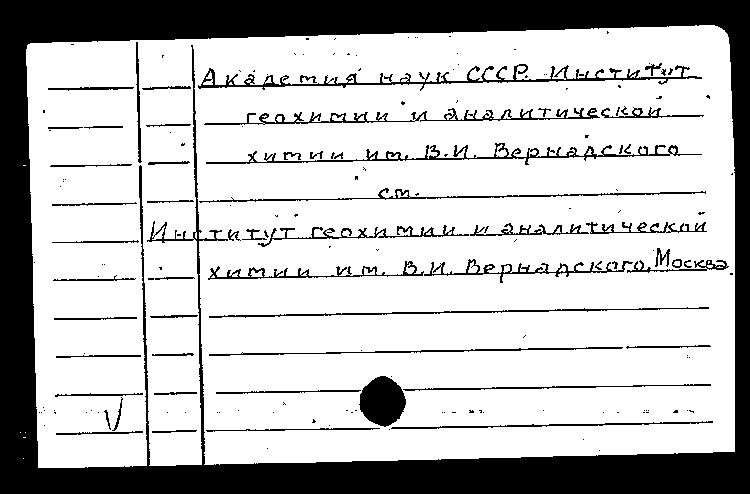 Академия наук СССР. Институт
геохимии и аналитической
химии им. В.И. Вернадского
см.
Институт геохимии и аналитической
химии им. В.И. Вернадского, Москва.
V